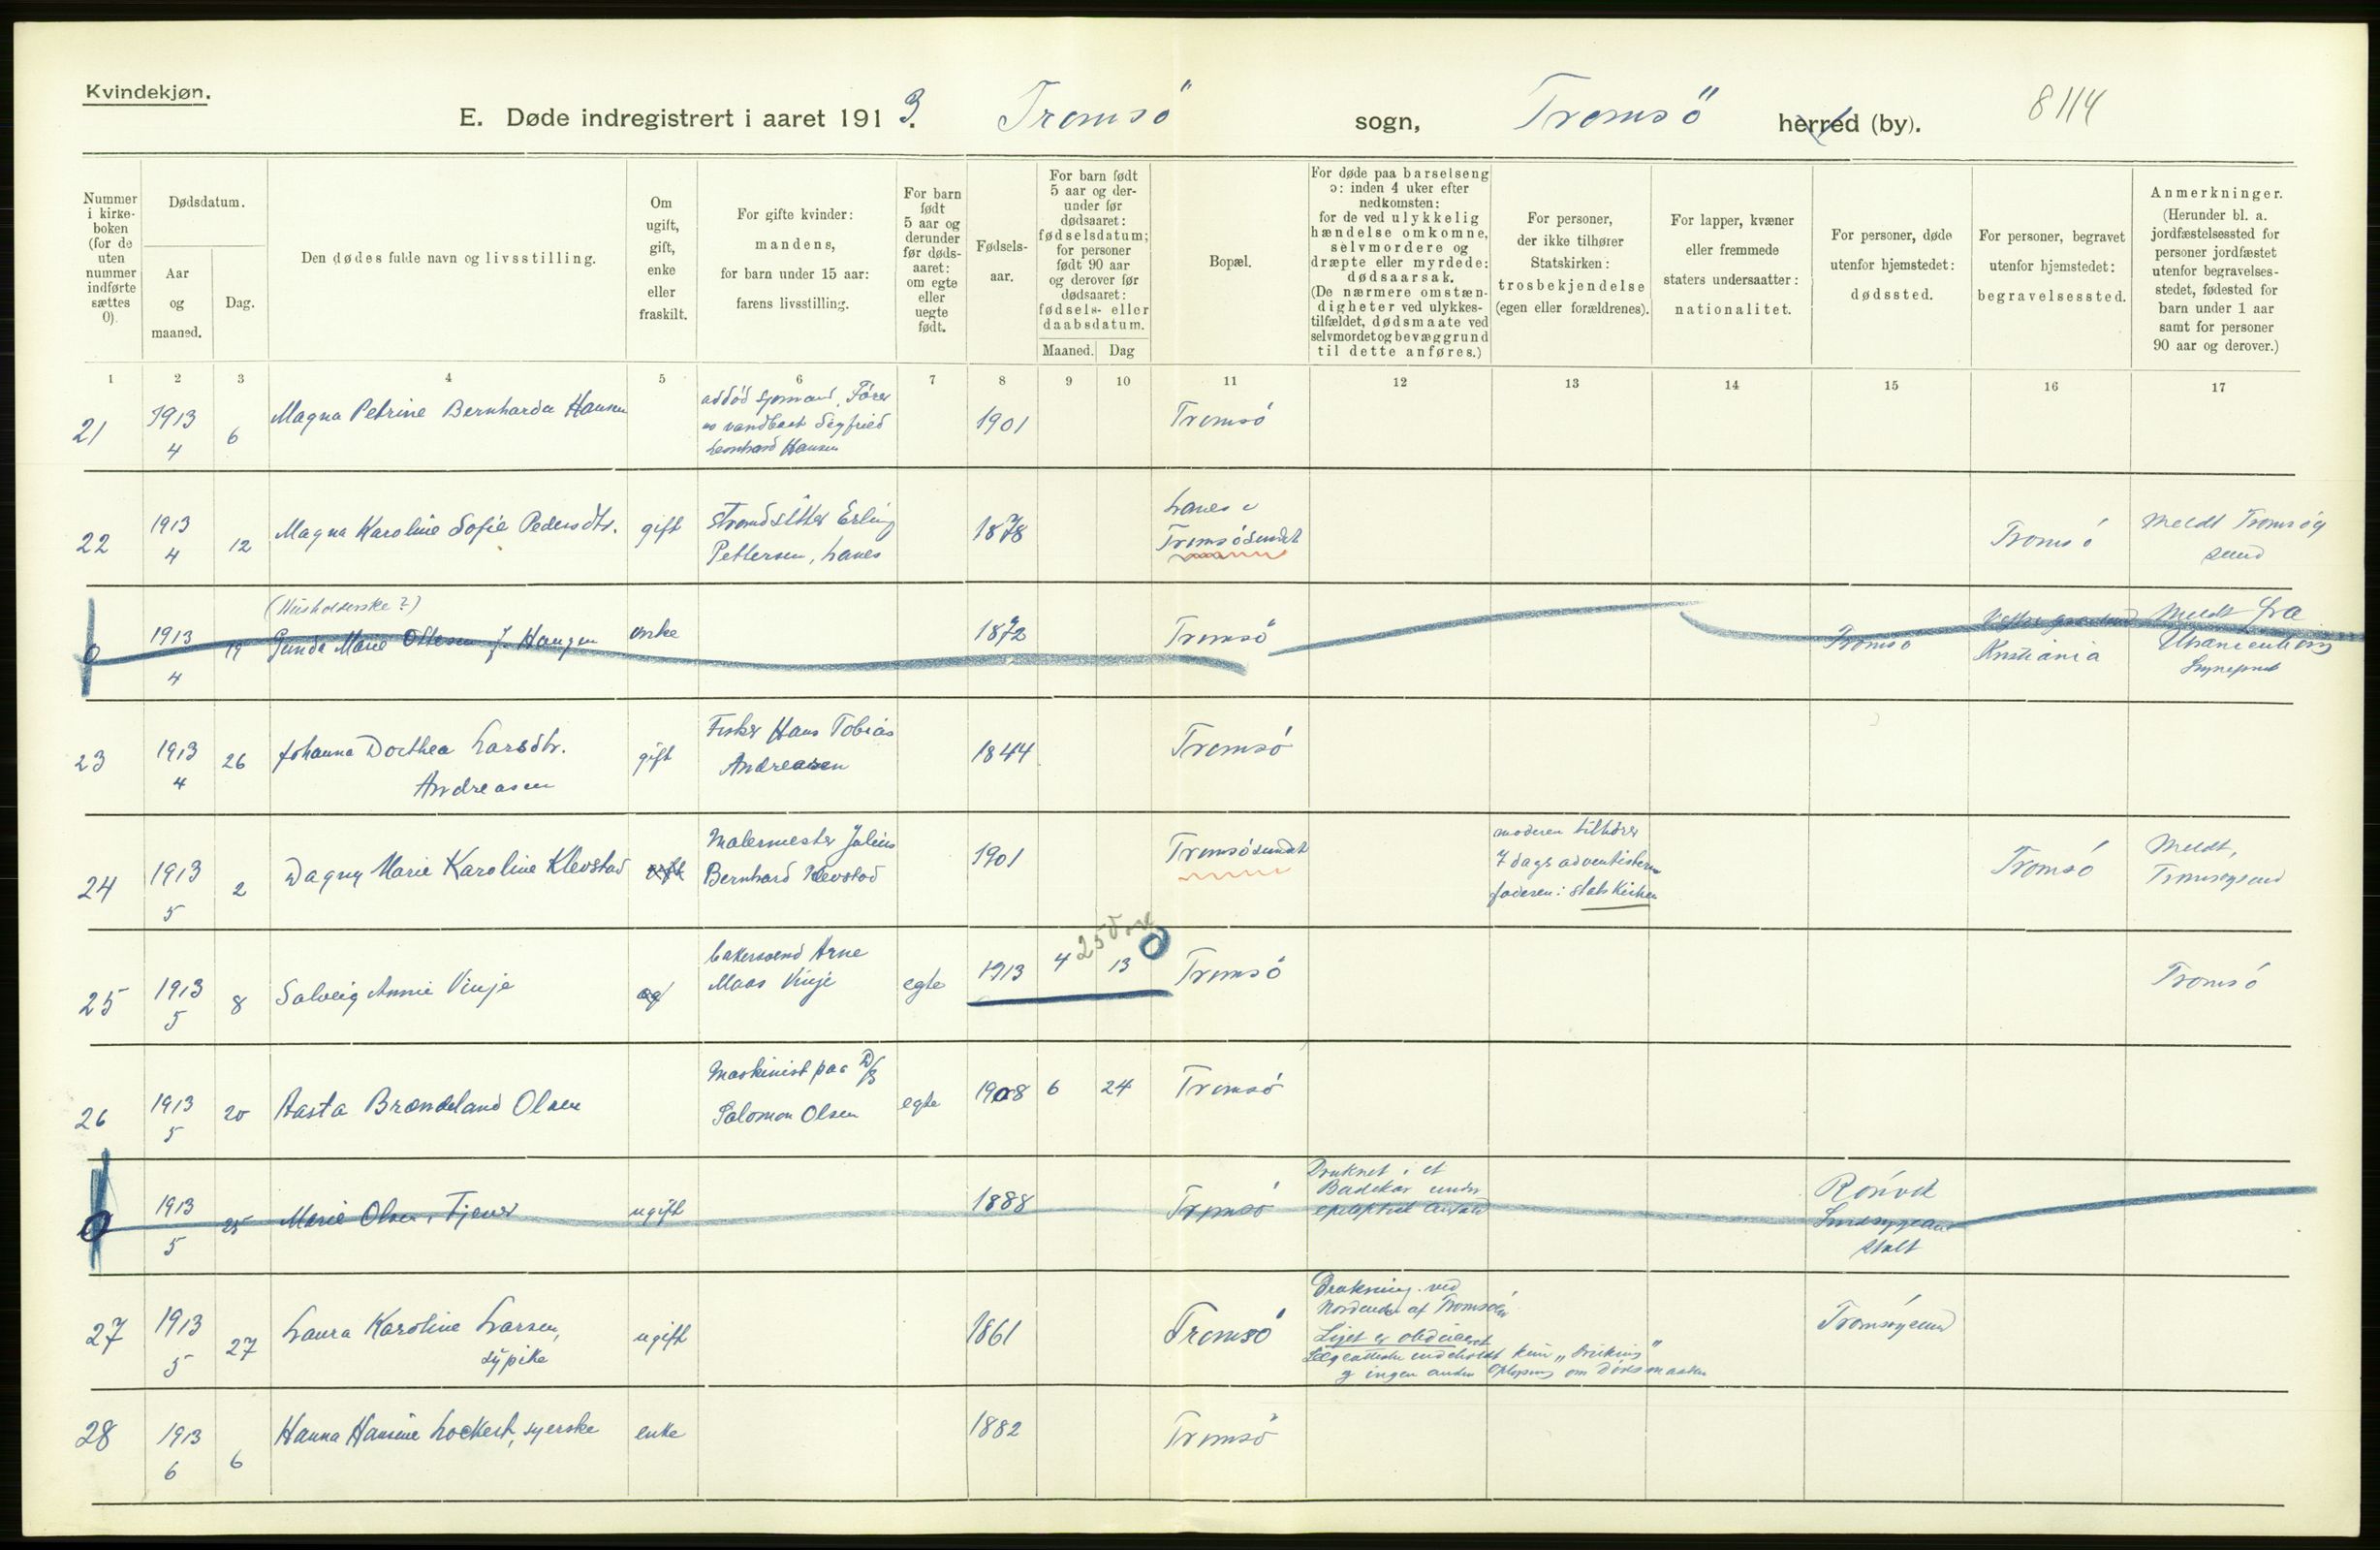 Kvindekjøn.
E. Døde indregistrert i aaret 1913. Tromsö sogn, Tromsö herred (by). 8114
Nummer i kirke-boken (for de uten nummer indførte sættes 0).
Dødsdatum.
Aar og maaned.
Dag.
Den dødes fulde navn og livsstilling.
Om ugift, gift, enke eller fraskilt.
For gifte kvinder: mandens, for barn under 15 aar: farens livsstilling.
For barn født 5 aar og derunder før døds-aaret: om egte eller uegte født.
Fødsels-aar.
For barn født 5 aar og der-under før dødsaaret: fødselsdatum; for personer født 90 aar og derover før dødsaaret: fødsels- eller daabsdatum.
Maaned. Dag
Bopæl.
For døde paa barselseng ɔ: inden 4 uker efter nedkomsten; for de ved ulykkelig hændelse omkomne, selvmordere og dræpte eller myrdede: dødsaarsak. (De nærmere omstæn-digheter ved ulykkes-tilfældet, dødsmaate ved selvmordet og bevæggrund til dette anføres.)
For personer, der ikke tilhører Statskirken: trosbekjendelse (egen eller forældrenes).
For lapper, kvæner eller fremmede staters undersaatter: nationalitet.
For personer, døde utenfor hjemstedet: dødssted.
For personer, begravet utenfor hjemstedet: begravelsessted.
Anmerkninger. (Herunder bl. a. jordfæstelsessted for personer jordfæstet utenfor begravelses-stedet, fødested for barn under 1 aar samt for personer 90 aar og derover.)
1 2 3 4 5 6 7 8 9 10 11 12 13 14 15 16 17
21 1913 4 6 Magna Petrine Bernharda Hansen Sigfried Leonhard Hansen 1901 Tromsö
22 1913 4 12 Magna Karoline Sofie Pedersdtr. gift Strandsitter Erling Pettersen, Lanes 1878 Lanes i Tromsösundet Tromsö Meldt Tromsöysund
0 1913 4 19 (Husholderske?) Gunda Marie Ottesen f. Haugen enke 1872 Tromsö Tromsö Kristiania Meldt fra
23 1913 4 26 Johanna Dorthea Larsdtr. Andreasen gift Fisker Hans Tobias Andreasen 1844 Tromsö
24 1913 5 2 Dagny Marie Karoline Klevstad Malermester Julius Bernhard Klevstad 1901 Tromsösundet moderen tilhörer 7 dags adventisterne faderen: statskirken Tromsö Meldt, Tromsöysund
25 1913 5 8 Solveig Annie Vinje Bakersvend Arne Maas Vinje egte 1913 4 13 25 0 Tromsö Tromsö
26 1913 5 20 Aasta Brændeland Olsen Maskinist paa D/S Salomon Olsen egte 1908 6 24 Tromsö
0 1913 5 25 Marie Olsen, Tjener ugift 1888 Tromsö Druknet i et Badekar under epileptisk anfald Rönvik Sindssygeanstalt
27 1913 5 27 Laura Karoline Larsen, sypike ugift 1861 Tromsö Drukning ved Nordenden af Tromsöen Liget er obduceret Lægeattesten indeholdt kun „Drukning" og ingen anden Oplysning om Dödsmaaden Tromsöysund
28 1913 6 6 Hanna Hansine Lockert, syerske enke 1882 Tromsö